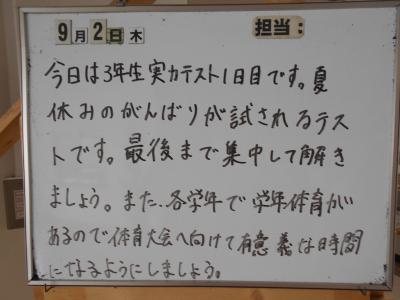 9月2日木 担当：
今日は3年生実力テスト1日目です。夏
休みのがんばりが試されるテス
トです。最後まで集中して解き
ましょう。また、各学年で学年体育が
あるので体育大会へ向けて有意義な時間
になるようにしましょう。